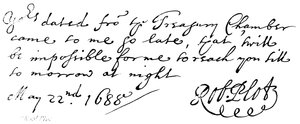 Yors dated fro ye Treasury Chamber
came to me so late, that 'twill
be impossible for me to reach you till
to morrow at night
May 22nd 1688
Rob. Plot